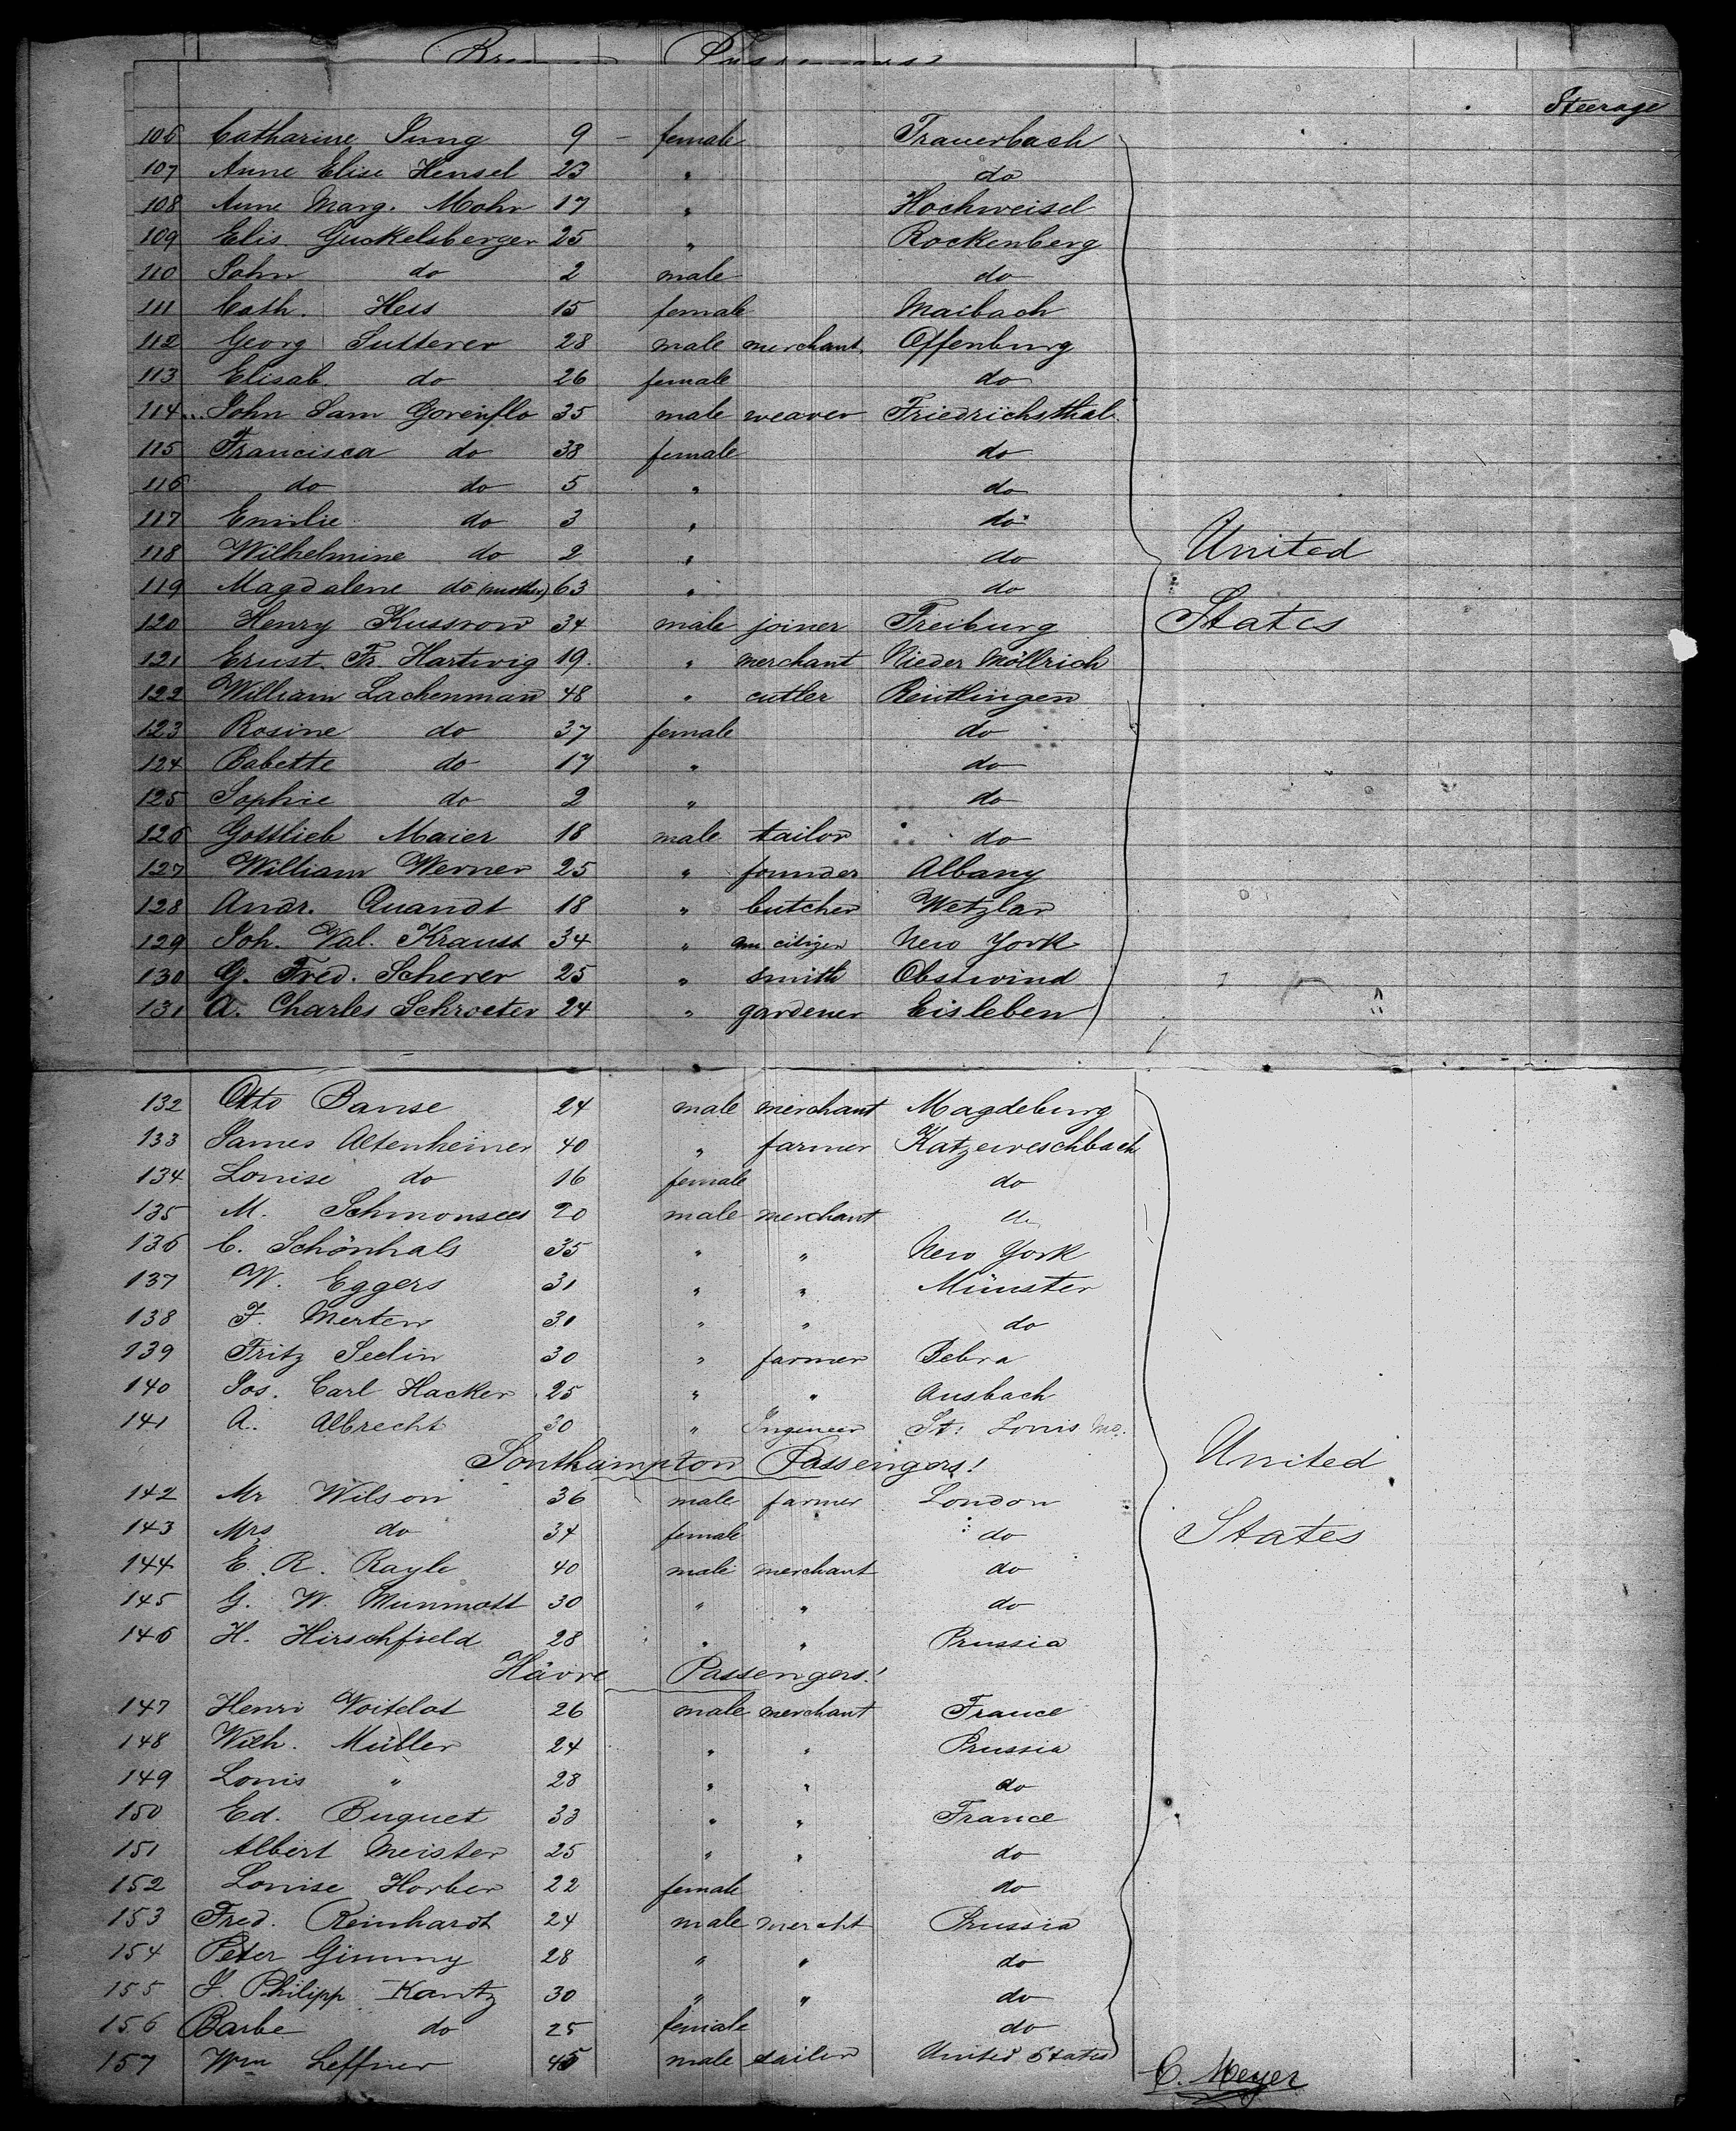 Passengers
Steerage
106 Catharine Jung 9 – female Trauerbach
107 Anne Elise Hensel 23 " do
108 Anne Marg. Mohr 17 " Hochweisel
109 Elis. Guckelsberger 25 " Rockenberg
110 John do 2 male do
111 Cath. Hess 15 female Maibach
112 Georg Sutterer 28 male merchant Offenburg
113 Elisab. do 26 female do
114 John Sam Gorenflo 35 male weaver Friedrichsthal
115 Francisca do 38 female do
116 do do 5 " do
117 Emilie do 3 " do
118 Wilhelmine do 2 " do
United
119 Magdalene do (mother) 63 " do
120 Henry Kussrow 34 male joiner Freiburg
States
121 Ernst. Fr. Hartwig 19. " merchant Nieder Möllrich
122 William Lachenmann 48 " cutler Reutlingen
123 Rosine do 37 female do
124 Babette do 17 " do
125 Sophie do 2 " do
126 Gottlieb Maier 18 male tailor do
127 William Werner 25 " founder Albany
128 Andr. Quandt 18 " butcher Wetzlar
129 Joh. Val. Krauss 34 " am citizen New York
130 G. Fred. Scherer 25 " smith Obstwind
131 A. Charles Schroeter 24 " gardener Eisleben
132 Otto Banse 24 male merchant Magdeburg
133 James Altenheiner 40 " farmer
134 Louise do 16 female do
135 M. Schmonsees 20 male merchant
136 C. Schönhals 35 " " New York
137 W. Eggers 31 " " Münster
138 F. Merten 30 " " do
139 Fritz Seelin 30 " farmer Bebra
140 Jos. Carl Hacker 25 " " Ansbach
141 A. Albrecht 30 " Ingeneer St. Louis Mo.
Southampton Passengers!
United
142 Mr Wilson 36 male farmer London
143 Mrs do 34 female do
States
144 E. R. Rayle 40 male merchant do
145 G. W. Munmott 30 " " do
146 H. Hirschfield 28 " " Prussia
Hâvre Passengers!
147 Henri Voitelot 26 male merchant France
148 Wilh. Müller 24 " " Prussia
149 Louis " 28 " " do
150 Ed. Buquet 33 " " France
151 Albert Meister 25 " " do
152 Louise Horber 22 female do
153 Fred. Reinhardt 24 male mercht Prussia
154 Peter Gimmy 28 " " do
155 J. Philipp Kantz 30 " " do
156 Barbe do 25 female do
157 Wm Leffner 45 male tailor United States
C. Meyer